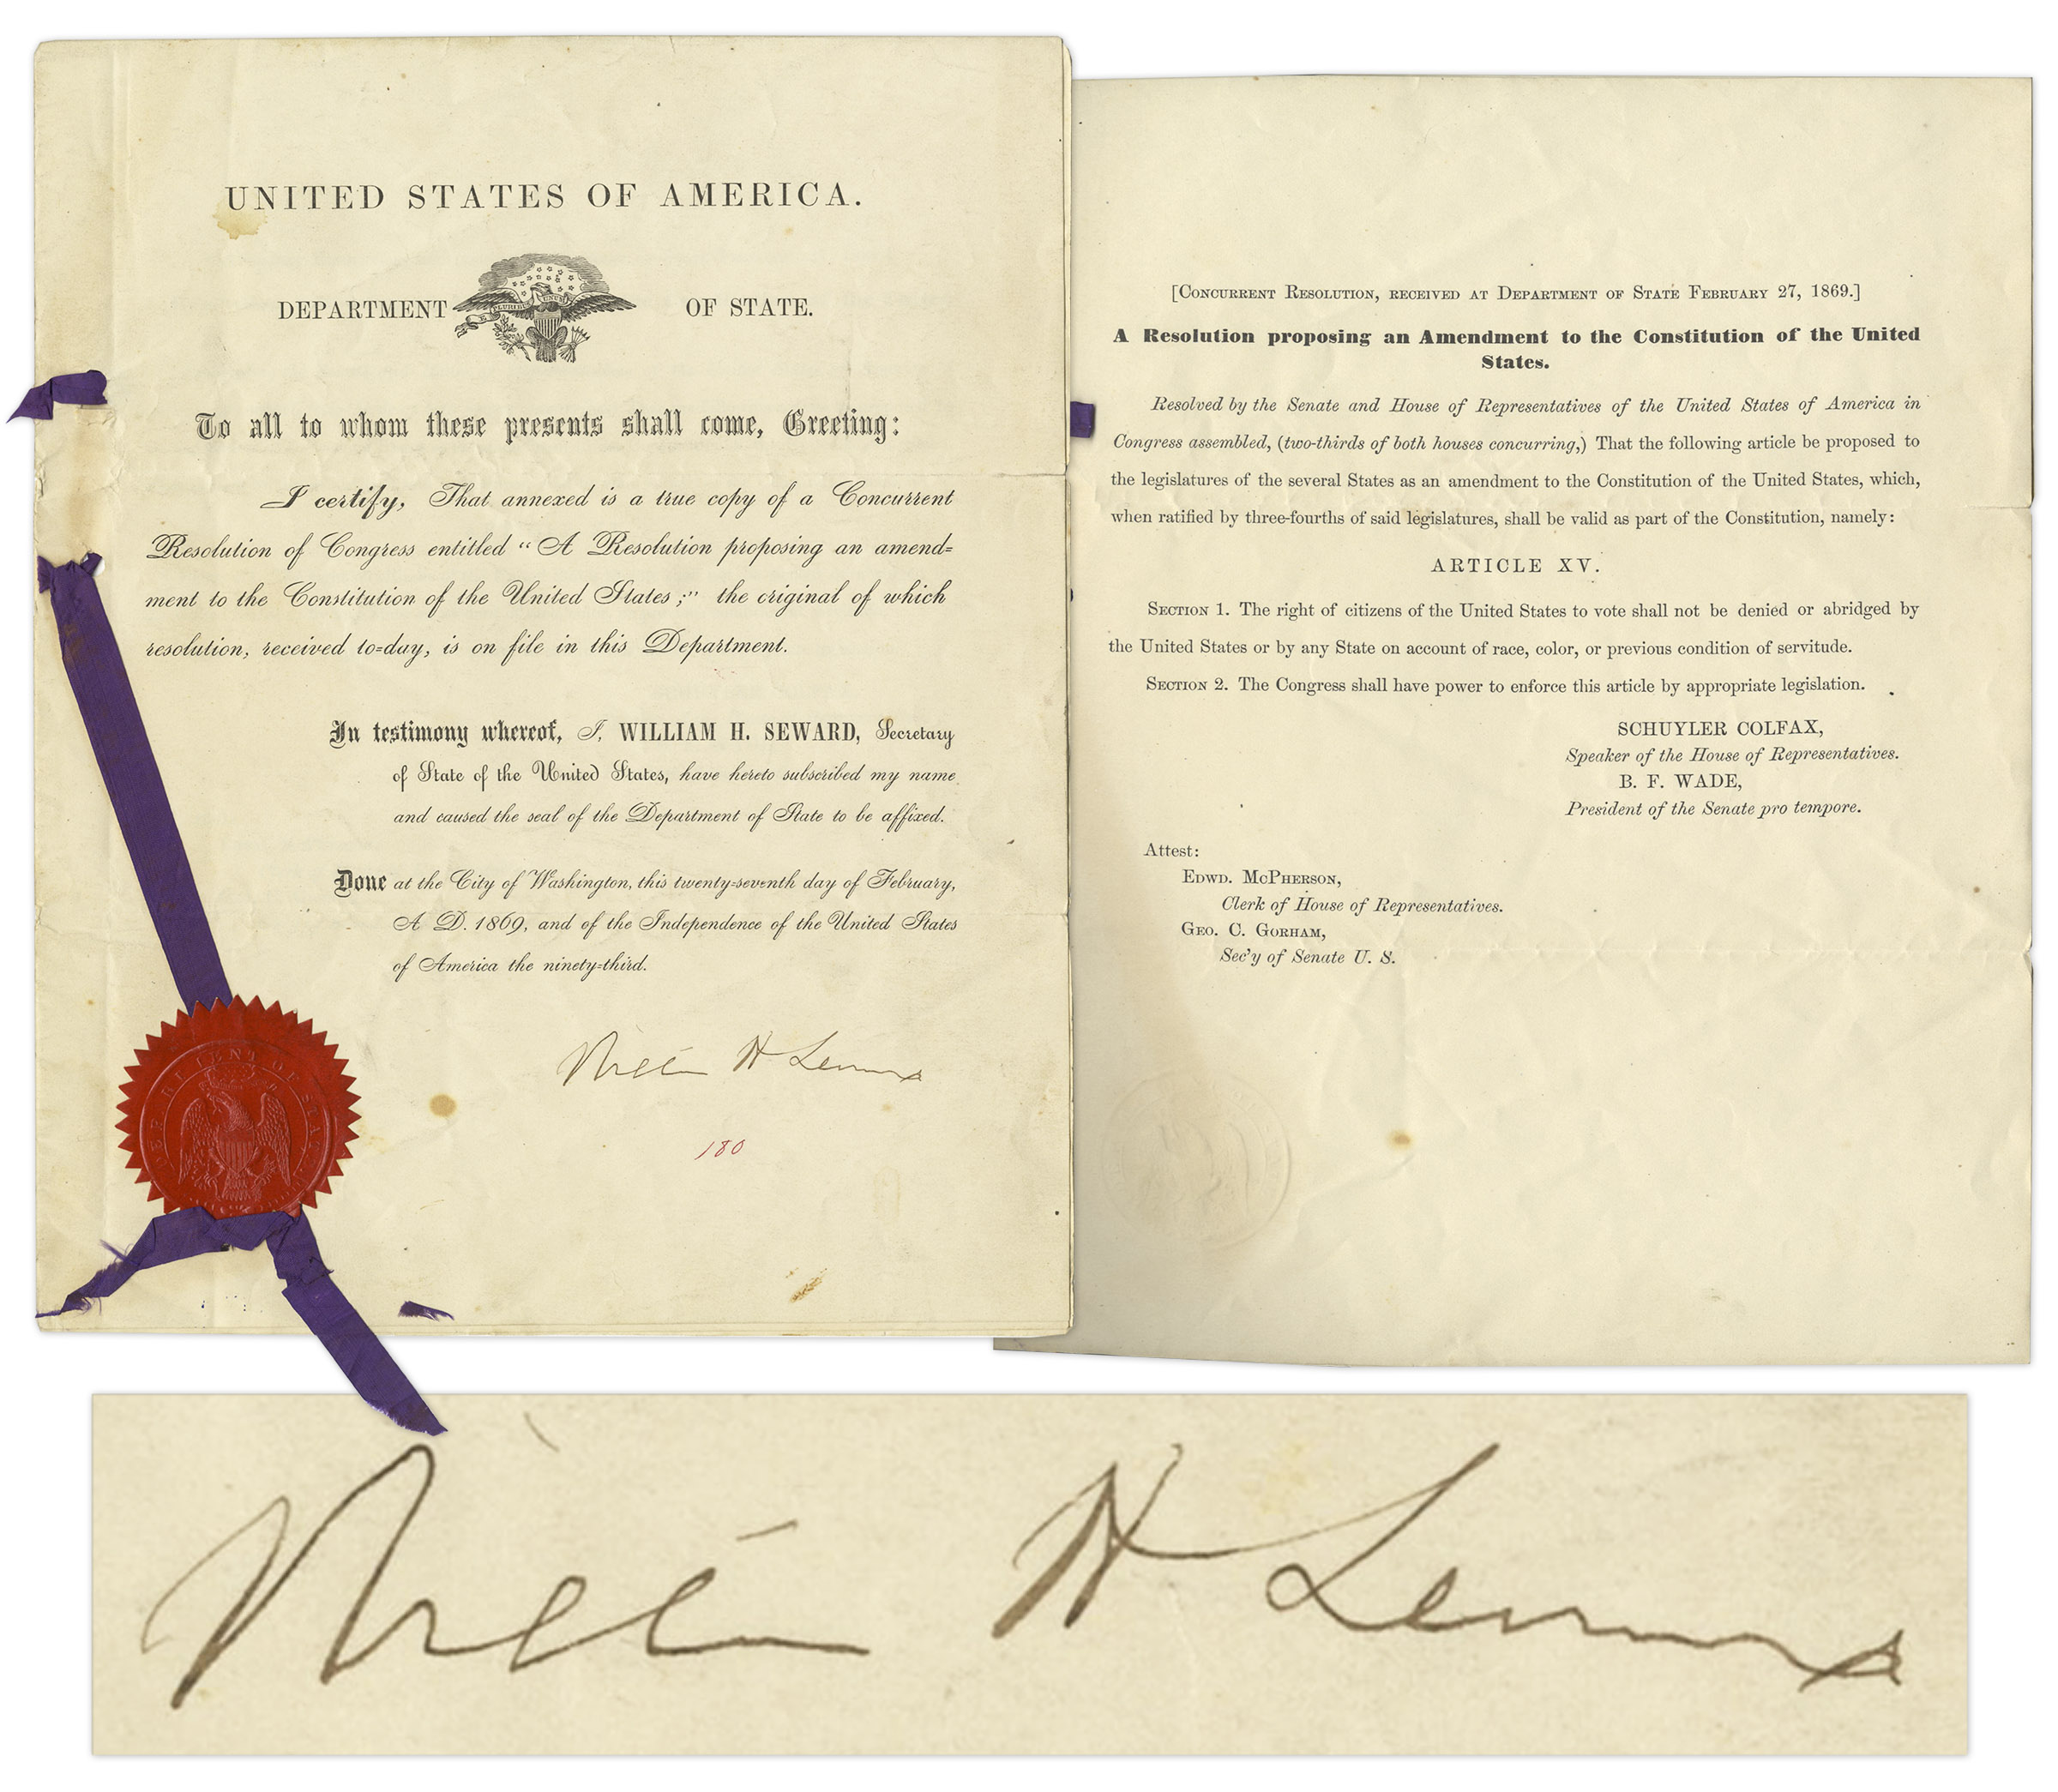 UNITED STATES OF AMERICA.
DEPARTMENT OF STATE.
To all to whom these presents shall come, Greeting:
I certify, That annexed is a true copy of a Concurrent
Resolution of Congress entitled “A Resolution proposing an amend=
ment to the Constitution of the United States;” the original of which
resolution, received to=day, is on file in this Department.
In testimony whereof, I, WILLIAM H. SEWARD, Secretary
of State of the United States, have hereto subscribed my name
and caused the seal of the Department of State to be affixed.
Done at the City of Washington, this twenty=seventh day of February,
A. D. 1869, and of the Independence of the United States
of America the ninety=third.
William H Seward
180
[CONCURRENT RESOLUTION, RECEIVED AT DEPARTMENT OF STATE FEBRUARY 27, 1869.]
A Resolution proposing an Amendment to the Constitution of the United
States.
Resolved by the Senate and House of Representatives of the United States of America in
Congress assembled, (two-thirds of both houses concurring,) That the following article be proposed to
the legislatures of the several States as an amendment to the Constitution of the United States, which,
when ratified by three-fourths of said legislatures, shall be valid as part of the Constitution, namely:
ARTICLE XV.
SECTION 1. The right of citizens of the United States to vote shall not be denied or abridged by
the United States or by any State on account of race, color, or previous condition of servitude.
SECTION 2. The Congress shall have power to enforce this article by appropriate legislation.
SCHUYLER COLFAX,
Speaker of the House of Representatives.
B. F. WADE,
President of the Senate pro tempore.
Attest:
EDWD. MCPHERSON,
Clerk of House of Representatives.
GEO. C. GORHAM,
Sec'y of Senate U. S.
William H Seward